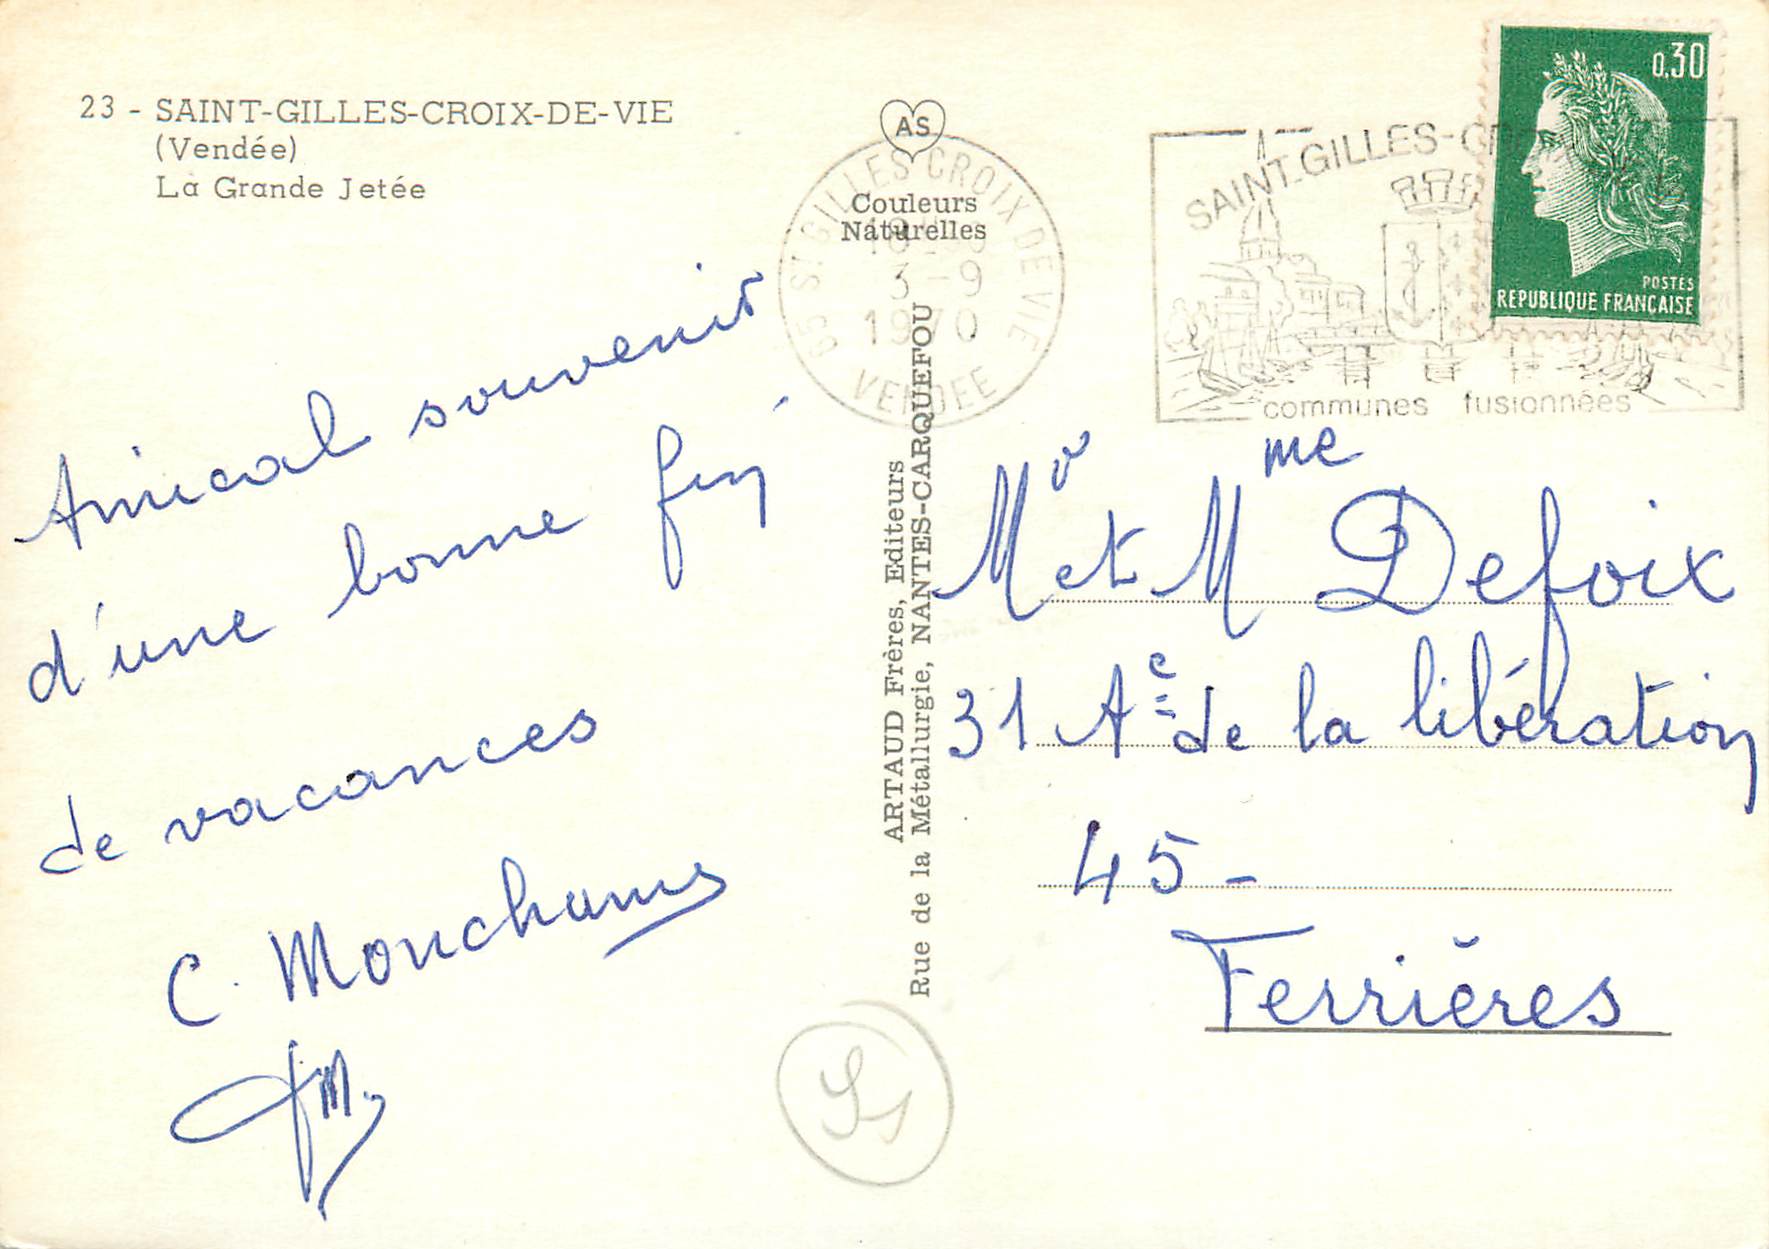 23 - SAINT-GILLES-CROIX-DE-VIE
(Vendée)
La Grande Jetée
AS
Couleurs
Naturelles
85 ST GILLES CROIX DE VIE
3 - 9
1970
VENDEE
SAINT GILLES-CROIX
communes fusionnées
0,30
POSTES
REPUBLIQUE FRANÇAISE
Amical souvenir
d'une bonne fin
de vacances
C. Monchaus
ARTAUD Frères, Editeurs
Rue de la Métallurgie, NANTES-CARQUEFOU
Mr et Mme Defoix
31 Ae de la libération
45 -
Ferrières